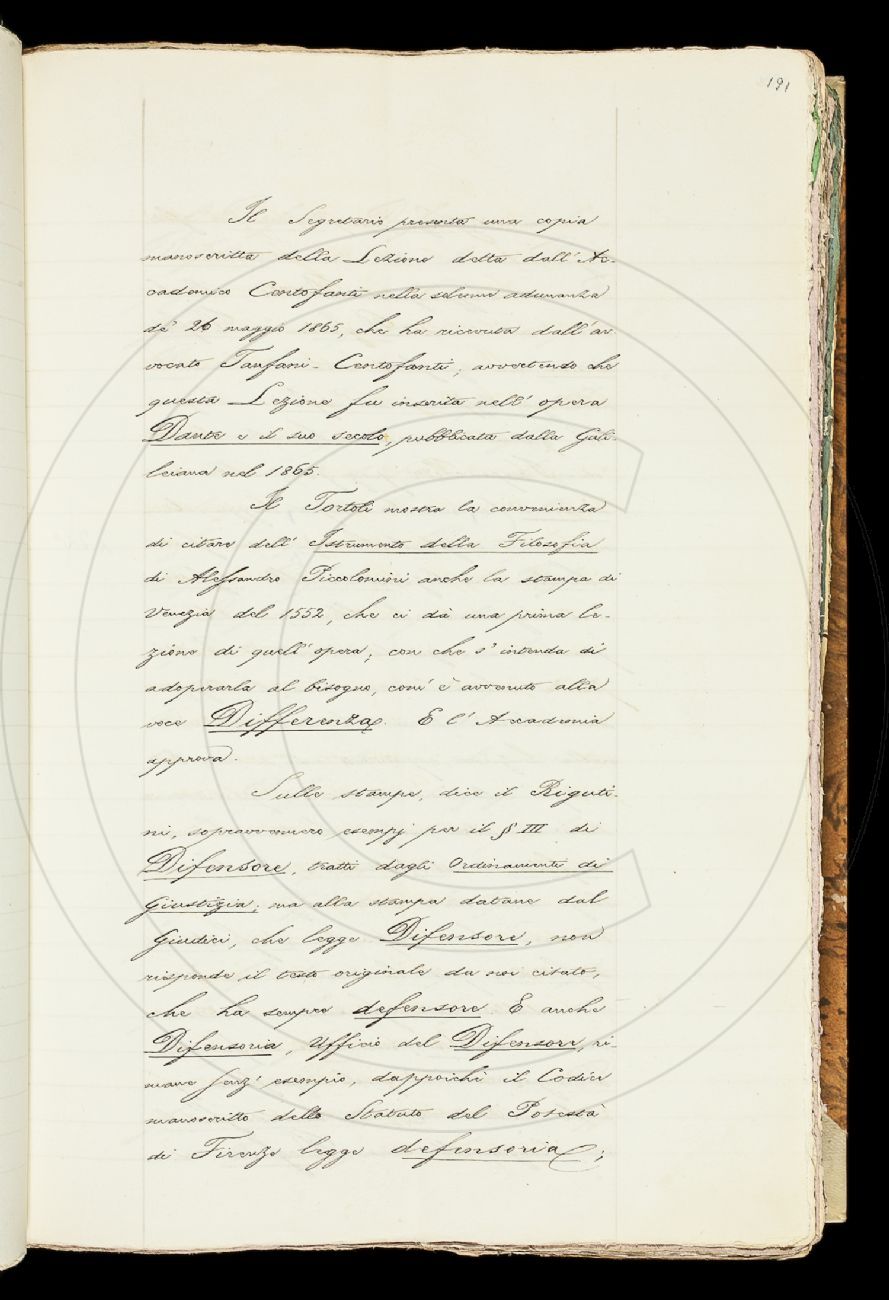 191
Il Segretario presenta una copia
manoscritta della Lezione detta dall'Ac-
cademico Centofanti nella solenne adunanza
de' 26 maggio 1865, che ha ricevuta dall'av
vocato Tanfani-Centofanti; avvertendo che
questa Lezione fu inserita nell'opera
Dante e il suo secolo, pubblicata dalla Gali-
leiana nel 1865.
Il Tortoli mostra la convenienza
di citare dell'Istrumento della Filosofia
di Alessandro Piccolomini anche la stampa di
Venezia del 1552, che ci dà una prima le-
zione di quell'opera; con che s'intenda di
adoperarla al bisogno, com'è avvenuto alla
voce Differenza. E l'Accademia
approva.
Sulle stampe, dice il Riguti-
ni, sopravvennero esempj per il § III di
Difensore, tratti dagli Ordinamenti di
Giustizia; ma alla stampa datane dal
Giudici, che legge Difensore, non
risponde il testo originale da noi citato,
che ha sempre defensore. E anche
Difensoria, Ufficio del Difensore, ri-
mane senz'esempio, dappoichè il Codice
manoscritto dello Statuto del Potestà
di Firenze legge defensoria;